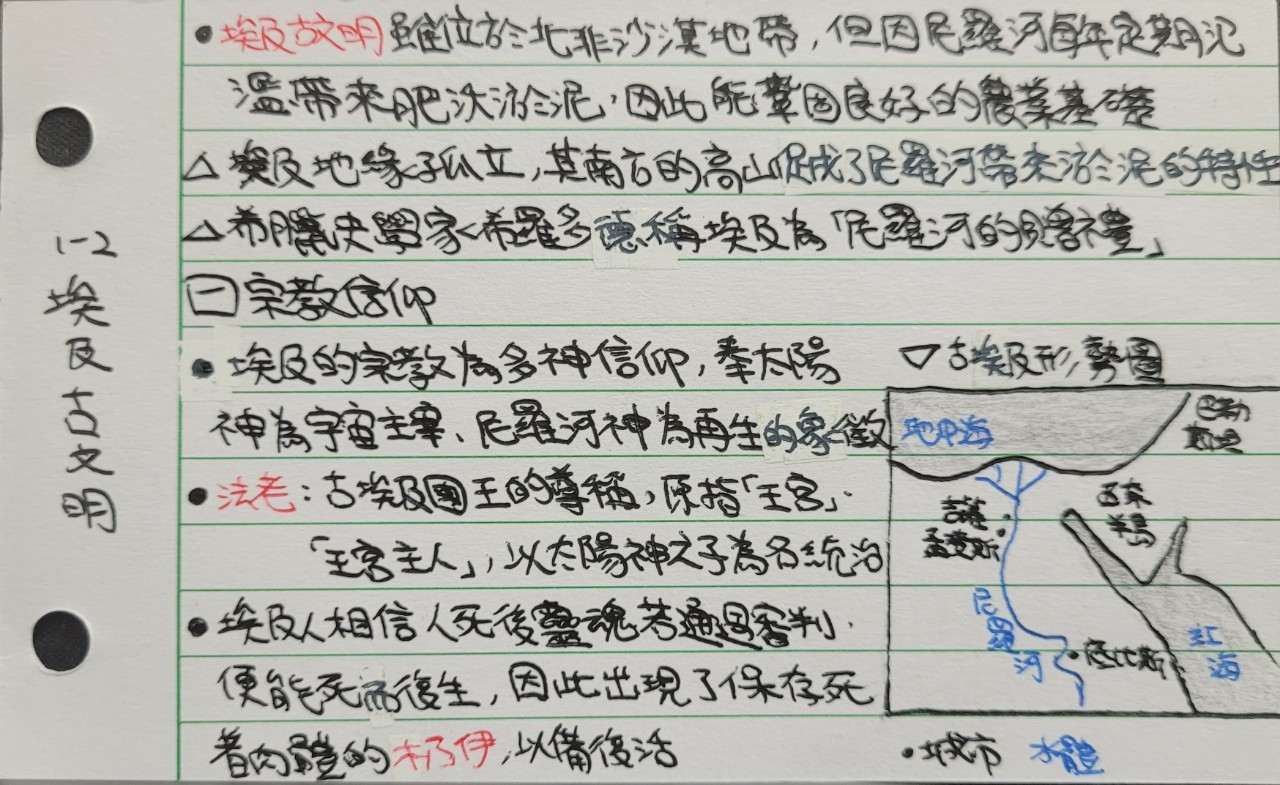 1-2 埃及古文明
• 埃及古文明雖位於北非沙漠地帶，但因尼羅河每年定期氾
濫帶來肥沃淤泥，因此能鞏固良好的農業基礎
△ 埃及地緣孤立，其南方的高山促成了尼羅河帶來淤泥的特性
△ 希臘史學家希羅多德稱埃及為「尼羅河的贈禮」
㊀ 宗教信仰
• 埃及的宗教為多神信仰，奉太陽
神為宇宙主宰、尼羅河神為再生的象徵
• 法老：古埃及國王的尊稱，原指「王宮」、
「王宮主人」，以太陽神之子為名統治
• 埃及人相信人死後靈魂若通過審判，
便能死而復生，因此出現了保存死
者肉體的木乃伊，以備復活
▽ 古埃及形勢圖
地中海
巴勒
斯坦
吉薩
孟斐斯
西奈
半島
尼羅河
底比斯
紅海
• 城市 水體